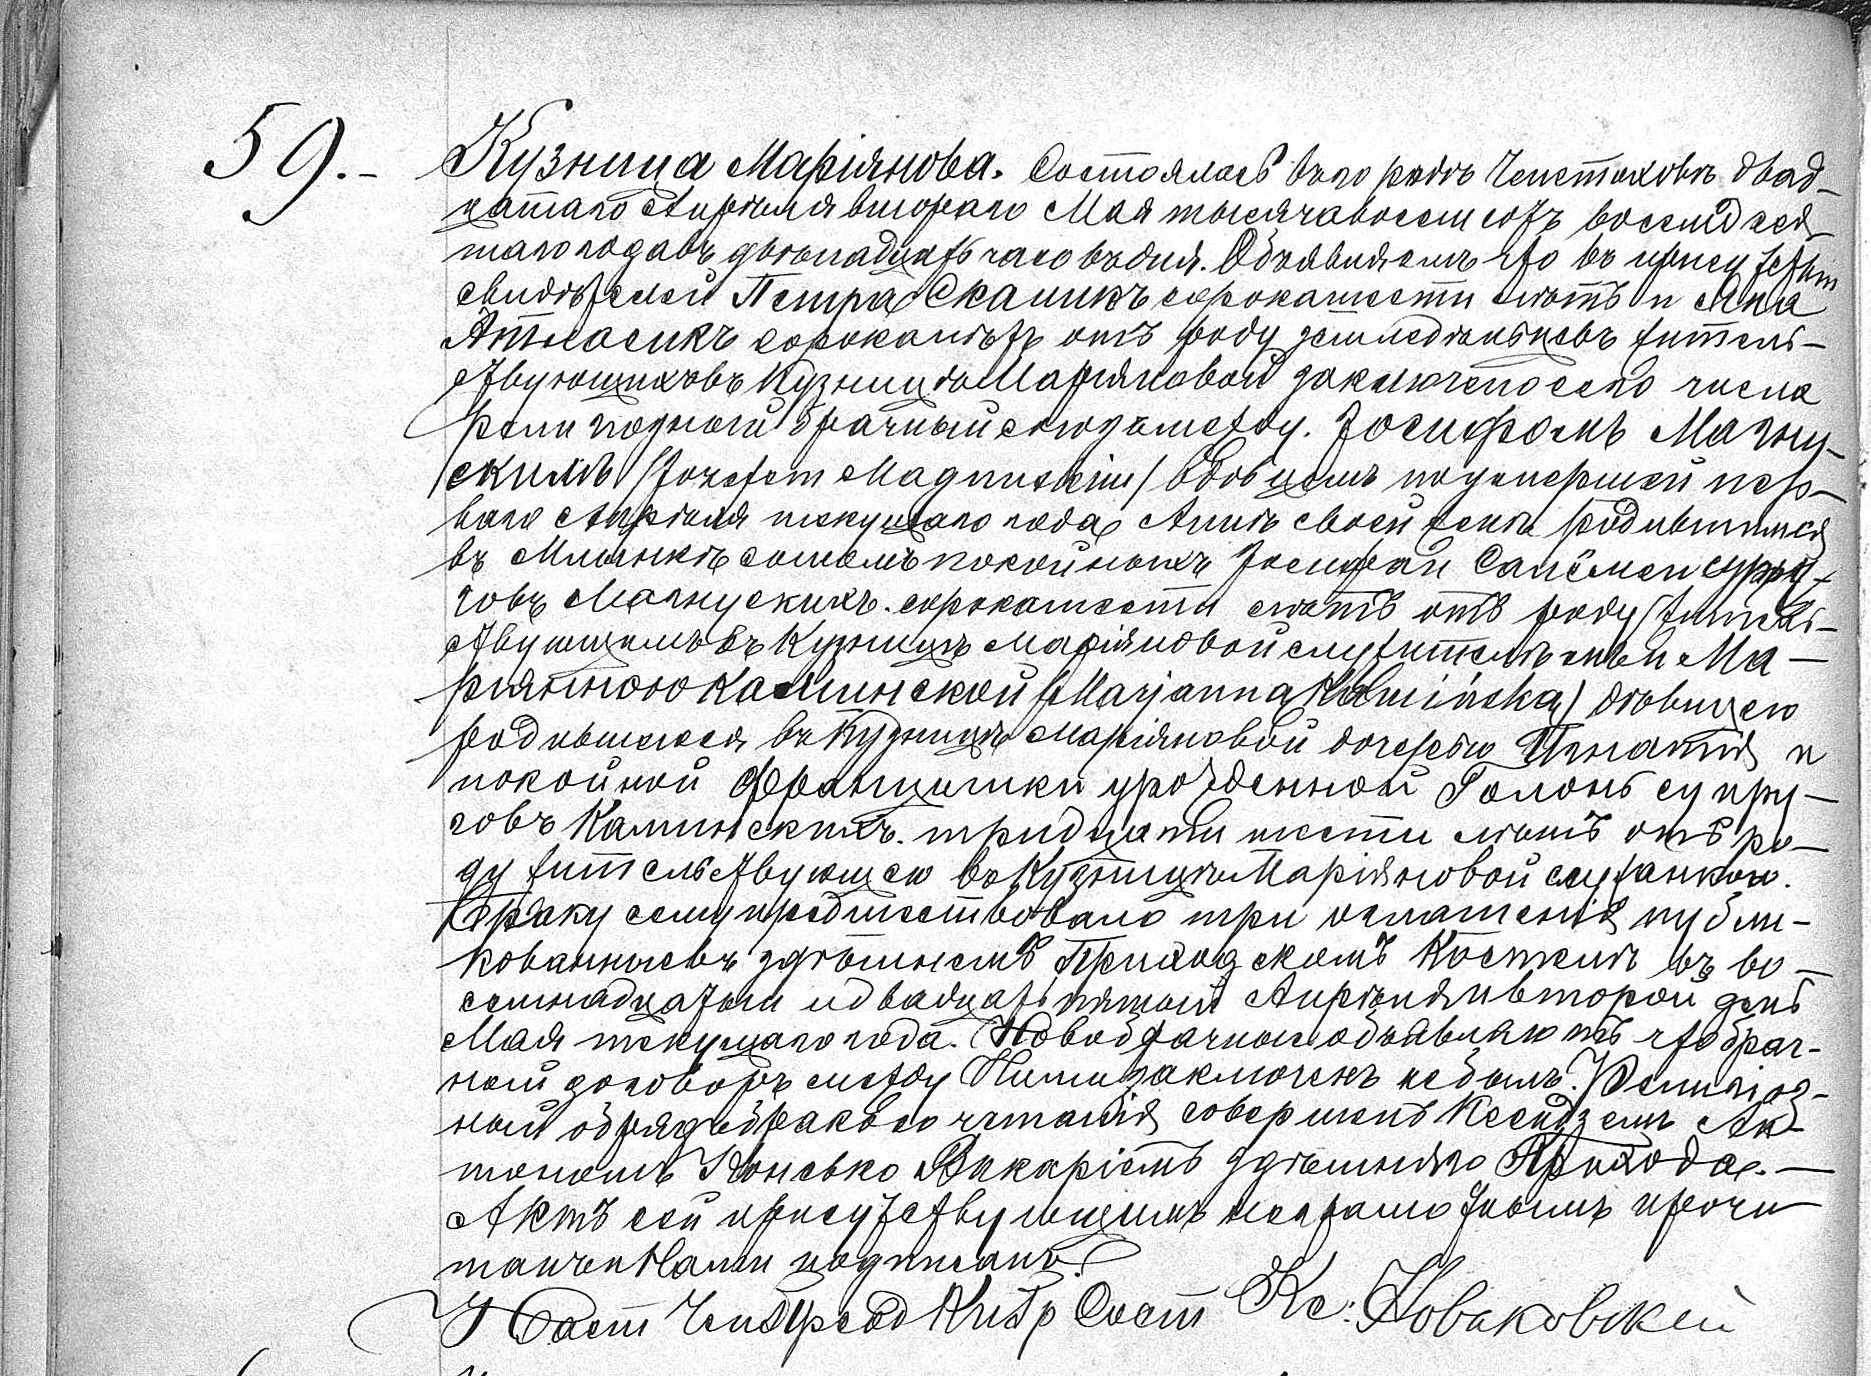 59.-
Кузница Маріянова. Состоялось въ городѣ Ченстоховѣ двад-
цатаго Апрѣля втораго Мая тысяча восемсотъ восемдеся-
таго года въ двѣнадцать часовъ дня. Объявляемъ что въ присутствіи
свидѣтелей Петра Скаликъ сорокашести лѣтъ и Яна
Атласикъ сорока лѣтъ отъ роду земледѣльцевъ жительс-
твующихъ въ Кузницѣ Маріяновой заключенъ сего числа
религіозный брачный союзъ между. Іосифомъ Магну-
скимъ /Józefem Magnuskim/ вдовцемъ по умершей пер-
ваго Апрѣля текущаго года Аннѣ своей женѣ родившимся
въ Млынкѣ сыномъ покойныхъ Іосифа и Саломеи супру-
говъ Магнускихъ. сорокашести лѣтъ отъ роду жительс-
твующемъ въ Кузницѣ Маріяновой служителемъ и Ма-
ріянною Каминской /Marjanna Kamińska/ дѣвицею
родившеюся въ Кузницѣ Маріяновой дочерью Игнатія и
покойной Францишки урожденной Голонъ супру-
говъ Каминскихъ. тридцати шести лѣтъ отъ ро-
ду жительствующею въ Кузницѣ Маріяновой служанкою.
Браку сему предшествовало три оглашенія публи-
кованные въ здѣшнемъ Приходскомъ Костелѣ въ во-
семнадцатый и двадцать пятый Апрѣля и второй день
Мая текущаго года. Новобрачные объявляютъ что брач-
ный договоръ между Ними заключенъ не былъ. Религіоз-
ный обрядъ бракосочетанія совершенъ Ксендземъ Ан-
тономъ Викаріемъ здѣшняго Прихода.-
Актъ сей присутствующимъ неграмотнымъ прочи-
танъ и Нами подписанъ.
Кс: Новаковскій